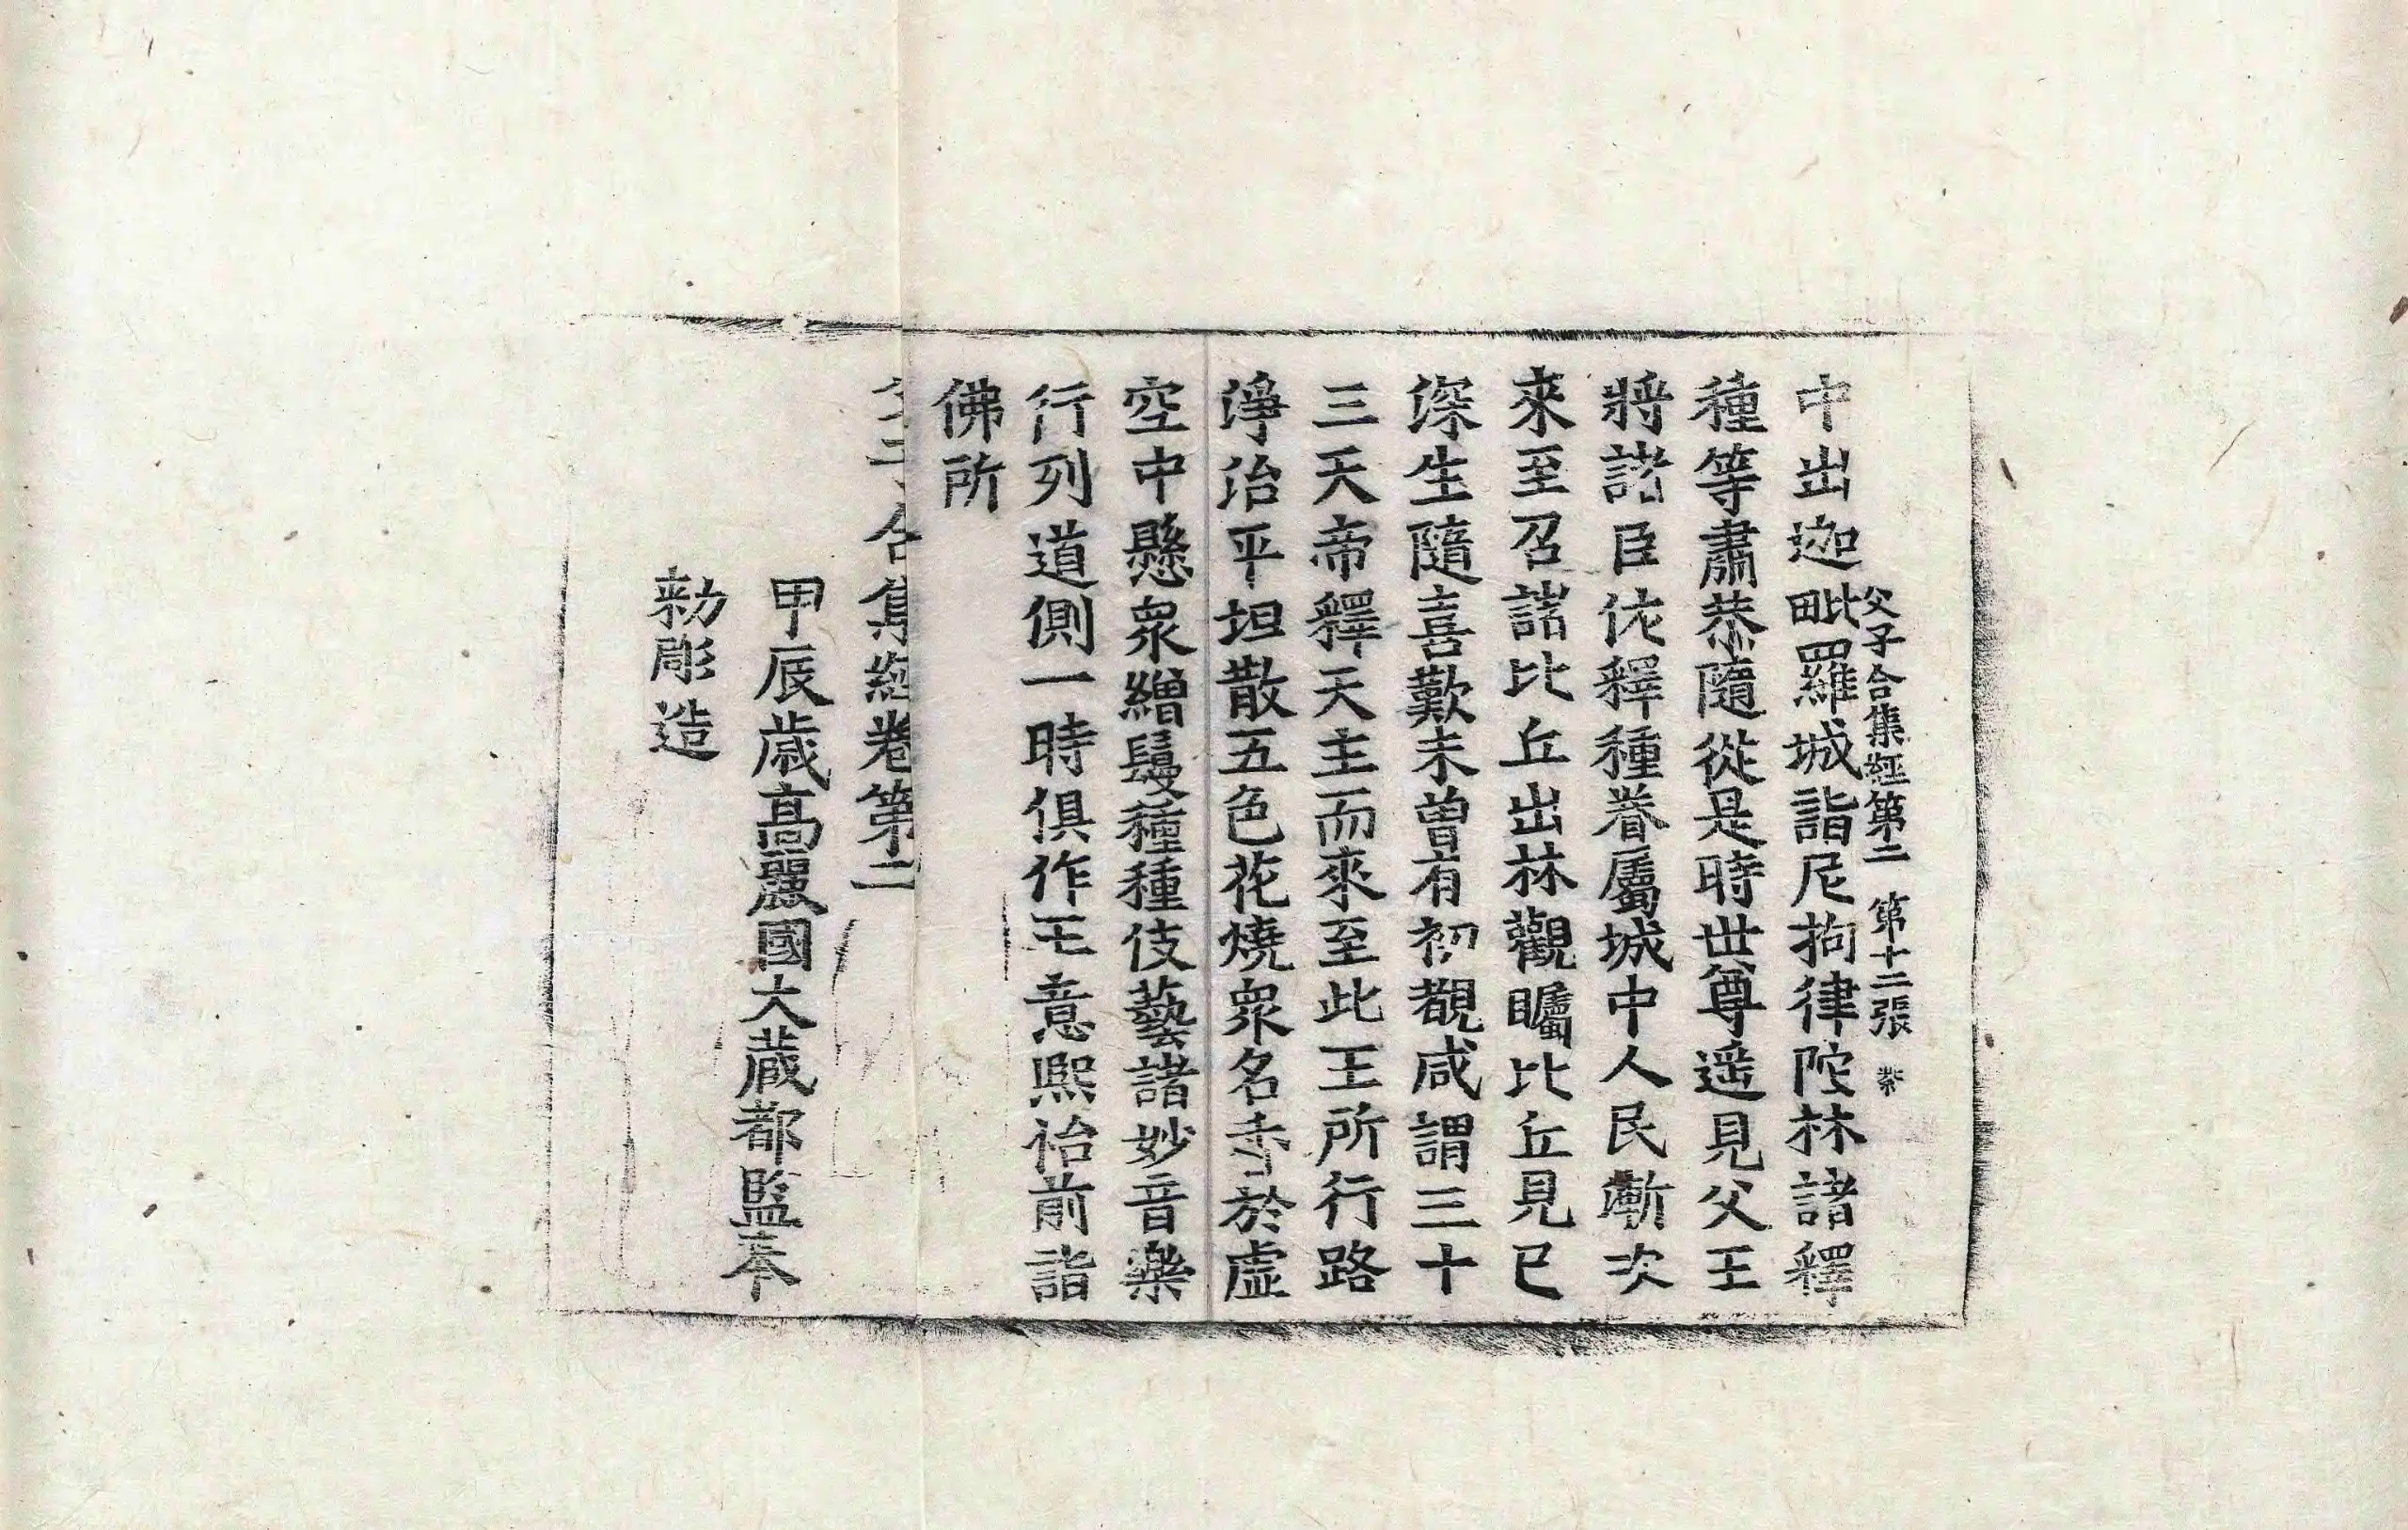 父子合集經第二 第十二張 紫
中出迦毗羅城詣尼拘律陀林諸釋
種等肅恭隨從是時世尊遥見父王
將諸臣佐釋種眷屬城中人民漸次
來至召諸比丘出林觀矚比丘見已
深生隨喜歎未曾有初覩咸謂三十
三天帝釋天主而來至此王所行路
淨治平坦散五色花燒衆名香於虛
空中懸衆繒鬘種種伎藝諸妙音樂
行列道側一時俱作王意熙怡前詣
佛所
父子合集經卷第二
甲辰歲高麗國大藏都監奉
勑彫造